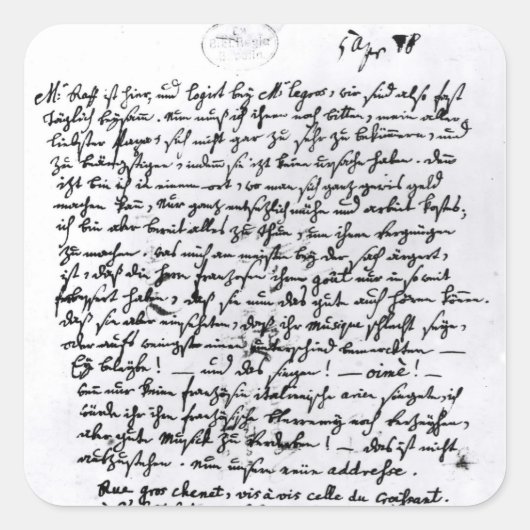 5 Apr 78
Mr. Raff ist hier, und logirt bey Mr. legros, wir sind also fast
täglich beysam. Nun muß ich ihnen noch bitten, mein aller
liebster Papa, sich nicht gar zu sehr zu bekümern, und
zu beängstigen, indem sie izt keine ursache haben. Denn
izt bin ich in einem ort, wo man sich ganz gewis geld
machen kan, Nur ganz entsezlich mühe und arbeit kosts;
ich bin aber bereit alles zu thun, um ihnen Vergnügen
zu machen. was mich am meisten bey der sach ärgert,
ist, daß die herrn franzosen ihren goût nur in so weit
verbessert haben, daß sie nun das gute auch hören können.
daß sie aber einseheten, daß ihr Musique schlecht seye,
oder aufs wenigste einen unterschied bemerckten —
Ey beleybe! — und das singen! — oimè! —
wen nur keine französin italienische arien singete, ich
würde ihr ihre französische Plererey noch verzeyhen,
aber gute Musick zu verderben! — das ist nicht
auszustehen. Nun unsere neüe addrehse.
Rue gros chenet, vis à vis celle du Croissant.